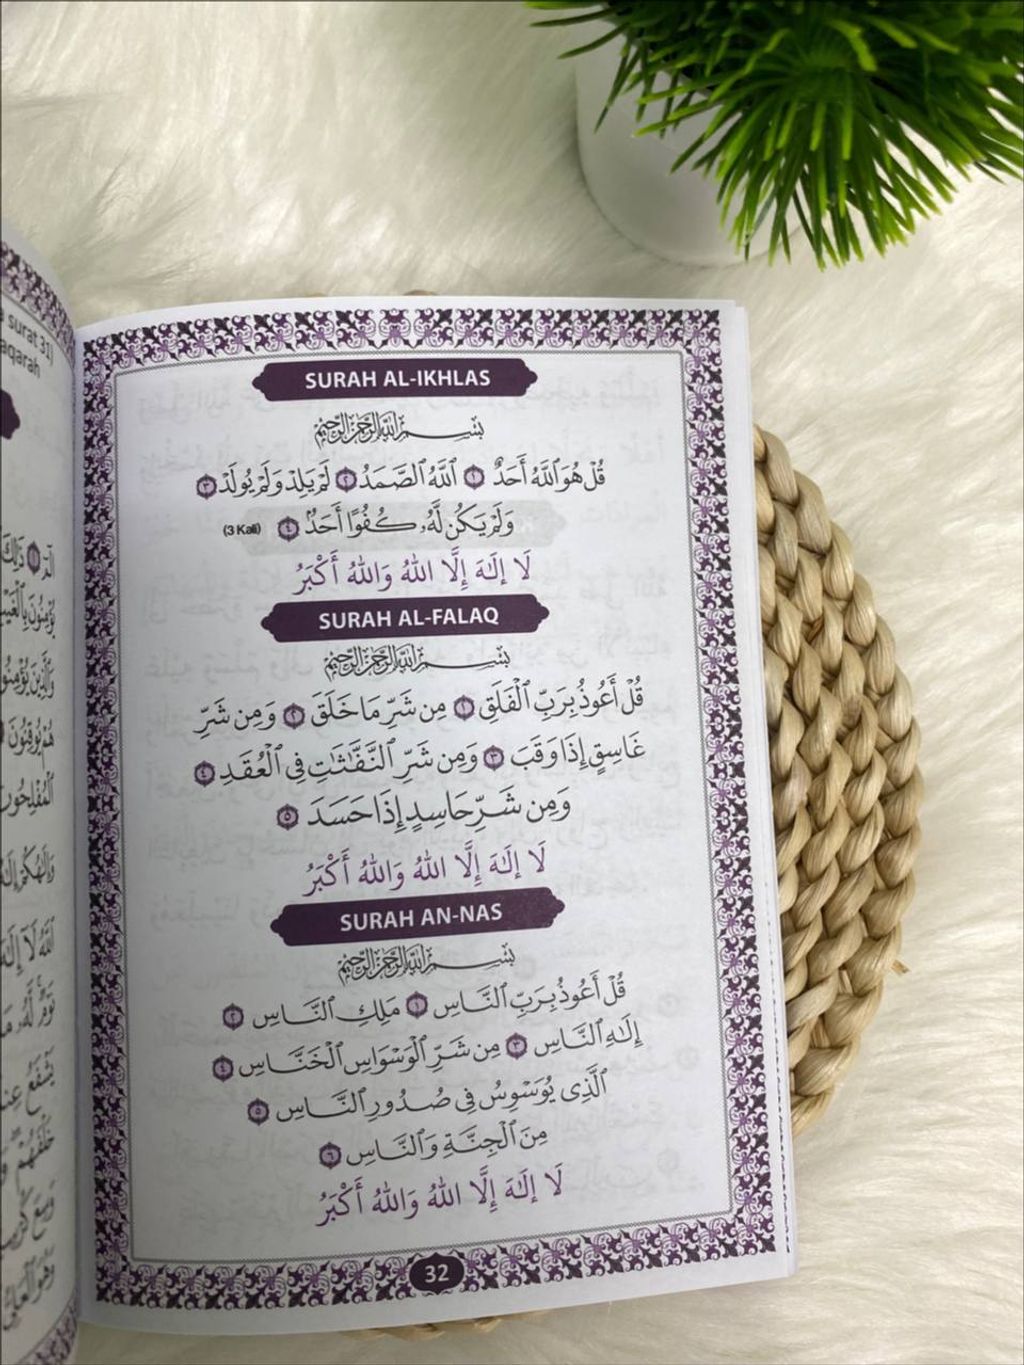 surat 31)
aqarah
SURAH AL-IKHLAS
بِسْمِ اللَّهِ الرَّحْمَٰنِ الرَّحِيمِ
قُلْ هُوَ ٱللَّهُ أَحَدٌ ١ ٱللَّهُ ٱلصَّمَدُ ٢ لَمْ يَلِدْ وَلَمْ يُولَدْ ٣
وَلَمْ يَكُن لَّهُۥ كُفُوًا أَحَدٌۢ ٤ (3 Kali)
لَا إِلٰهَ إِلَّا اللهُ وَاللهُ أَكْبَرُ
SURAH AL-FALAQ
بِسْمِ اللَّهِ الرَّحْمَٰنِ الرَّحِيمِ
قُلْ أَعُوذُ بِرَبِّ ٱلْفَلَقِ ١ مِن شَرِّ مَا خَلَقَ ٢ وَمِن شَرِّ
غَاسِقٍ إِذَا وَقَبَ ٣ وَمِن شَرِّ ٱلنَّفَّٰثَٰتِ فِى ٱلْعُقَدِ ٤
وَمِن شَرِّ حَاسِدٍ إِذَا حَسَدَ ٥
لَا إِلٰهَ إِلَّا اللهُ وَاللهُ أَكْبَرُ
SURAH AN-NAS
بِسْمِ اللَّهِ الرَّحْمَٰنِ الرَّحِيمِ
قُلْ أَعُوذُ بِرَبِّ ٱلنَّاسِ ١ مَلِكِ ٱلنَّاسِ ٢
إِلَٰهِ ٱلنَّاسِ ٣ مِن شَرِّ ٱلْوَسْوَاسِ ٱلْخَنَّاسِ ٤
ٱلَّذِى يُوَسْوِسُ فِى صُدُورِ ٱلنَّاسِ ٥
مِنَ ٱلْجِنَّةِ وَٱلنَّاسِ ٦
لَا إِلٰهَ إِلَّا اللهُ وَاللهُ أَكْبَرُ
32